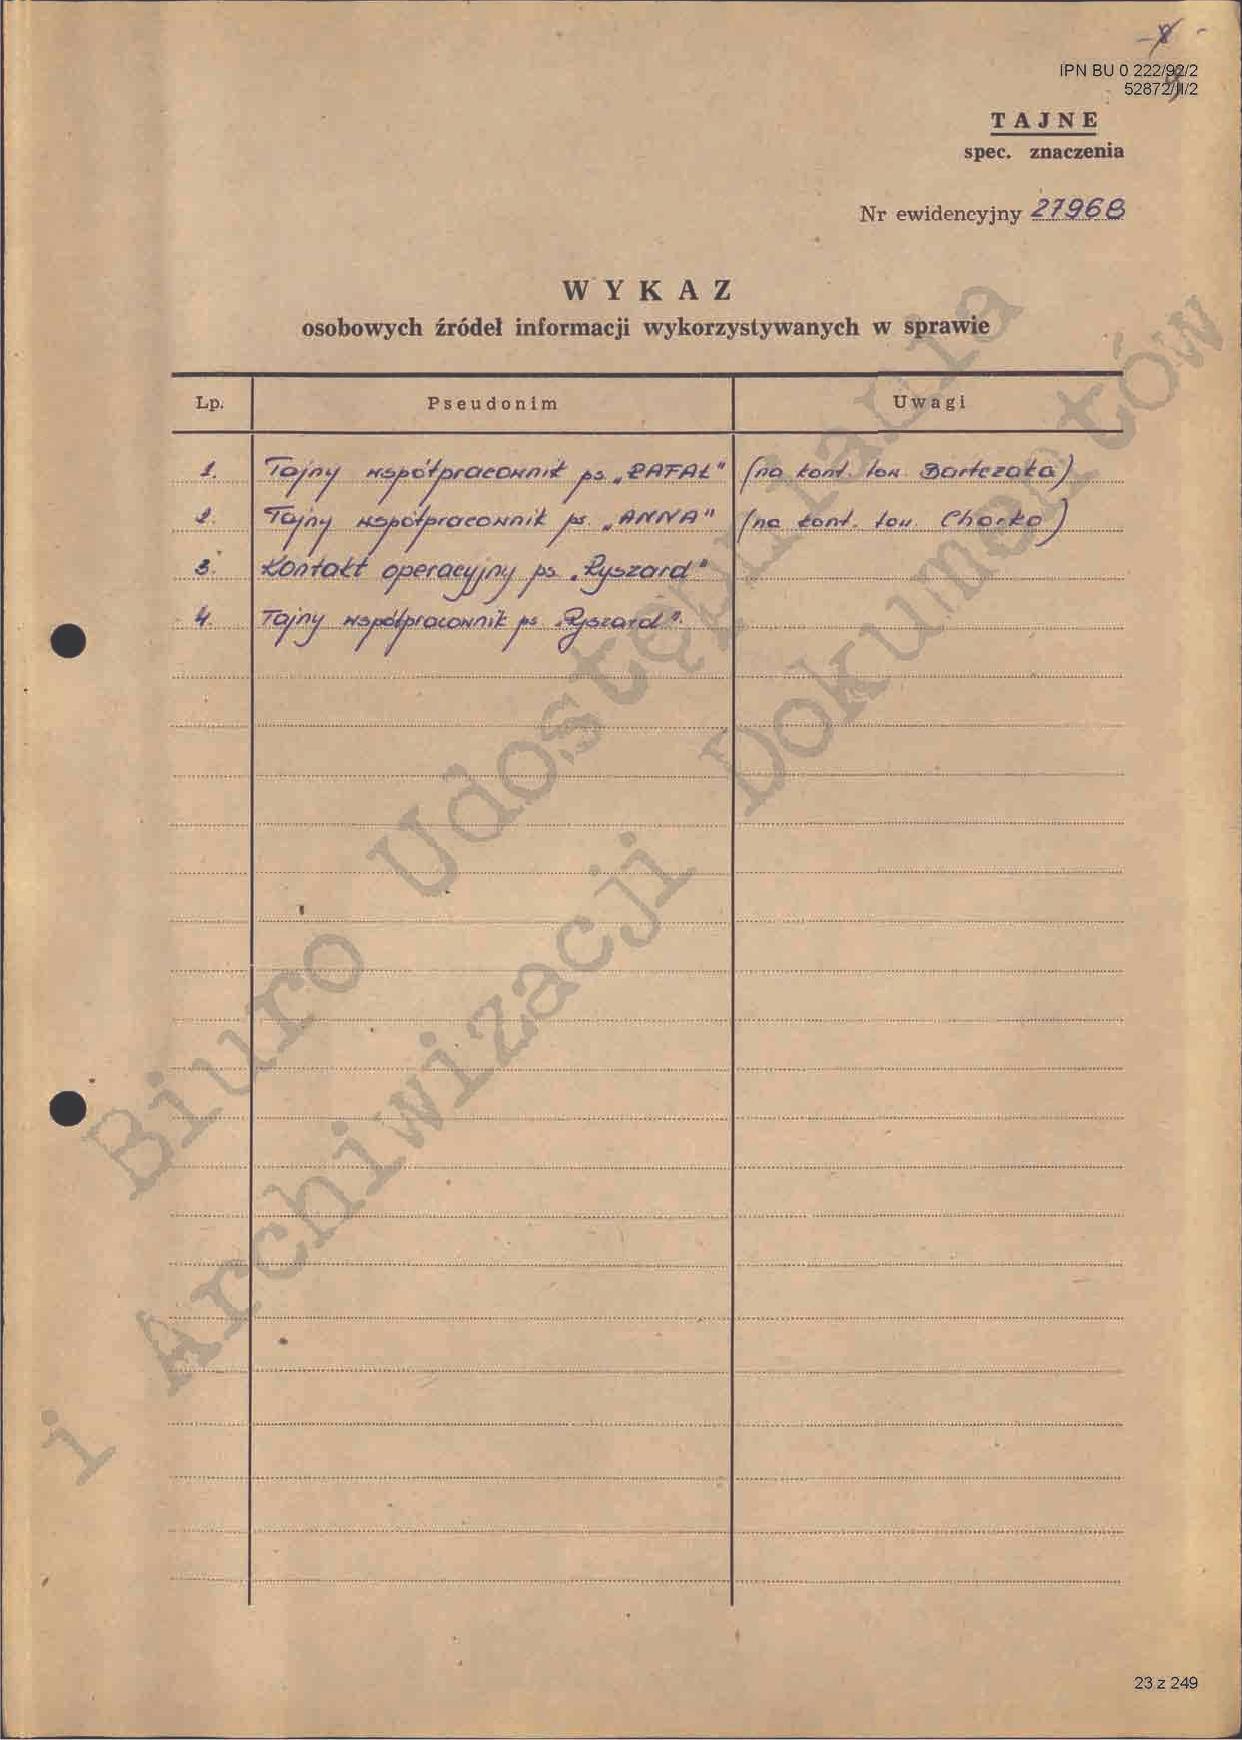 - 8 -
IPN BU 0 222/92/2
52872/II/2
TAJNE
spec. znaczenia
Nr ewidencyjny 27968
WYKAZ
osobowych źródeł informacji wykorzystywanych w sprawie
Lp. Pseudonim Uwagi
1. Tajny współpracownik ps. „RAFAŁ" (na kont. tow. Bartczaka)
2. Tajny współpracownik ps. „ANNA" (na kont. tow. )
3. Kontakt operacyjny ps. „Ryszard"
4. Tajny współpracownik ps. „Ryszard".
Biuro Udostępniania
i Archiwizacji Dokumentów
23 z 249